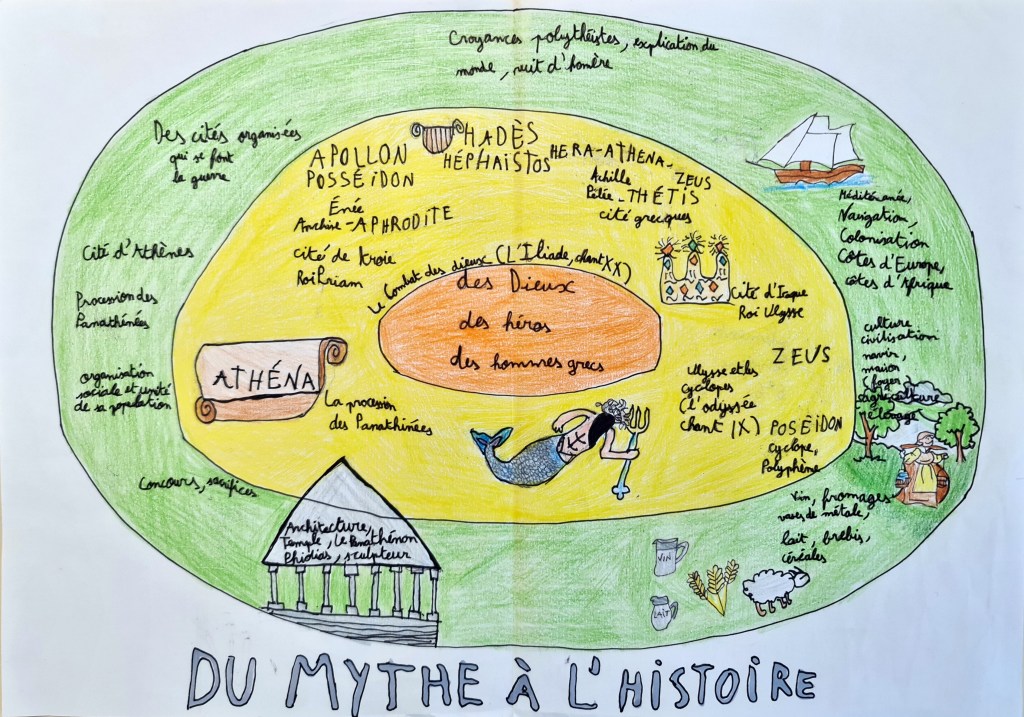 Croyances polythéistes, explication du
monde, récit d'homère
Des cités organisées
qui se font
la guerre
Cité d'Athènes
Procession des
Panathénées
organisation
sociale et unité
de sa population
Concours, sacrifices
Architecture,
Temple, le Panathénon
Phidias, sculpteur
Méditéranée,
Navigation,
Colonisation
Côtes d'Europe,
côtes d'Afrique
culture
civilisation
navire,
maison
(foyer)
agriculture
élevage
Vin, fromages
vases de métale,
lait, brebis,
céréales
VIN
LAIT
APOLLON
POSSÉIDON
Énée
Anchise-APHRODITE
cité de Troie
Roi Priam
HADÈS
HÉPHAISTOS
HERA-ATHENA-
ZEUS
Achille
Pélée-THÉTIS
cité grecques
Le Combat des dieux (L'Iliade, chant XX)
des Dieux
des héros
des hommes grecs
Cité d'Itaque
Roi Ulysse
ATHÉNA
La procession
des Panathinées
ZEUS
Ulysse et les
cyclopes
(l'odyssée
chant IX)
POSÉIDON
cyclope,
Polyphène
DU MYTHE À L'HISTOIRE